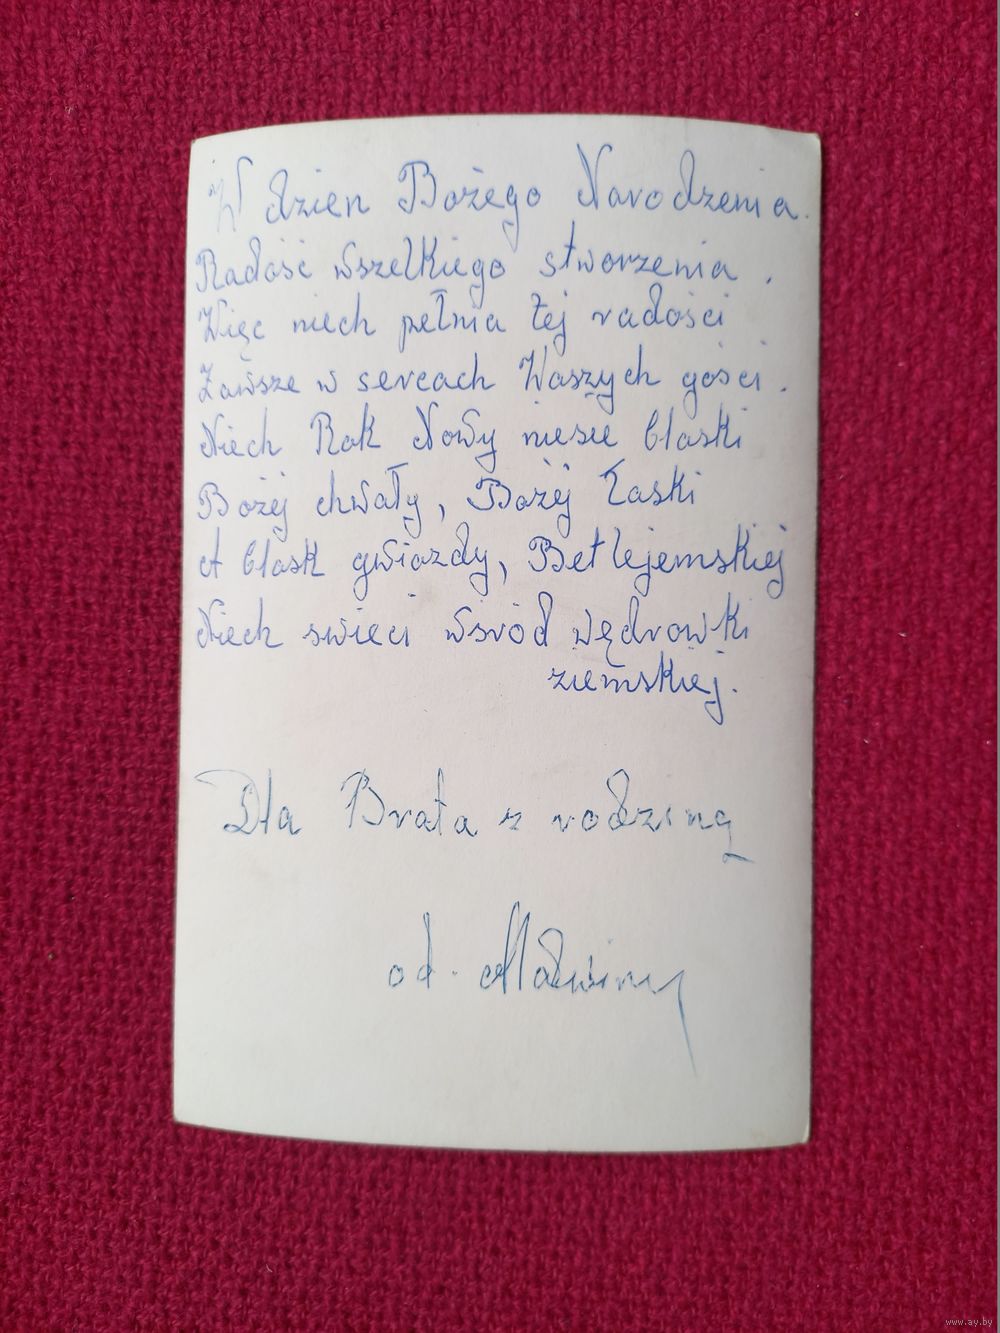 W dzien Bożego Narodzenia.
Radość wszelkiego stworzenia.
Więc niech pełnia tej radości
Zawsze w sercach Waszych gości.
Niech Rok Nowy niesie blaski
Bożej chwały, Bożej łaski
A blask gwiazdy, Betlejemskiej
Niech swieci wsród wędrowki
ziemskiej.
Dla Brata z rodziną
od. Malwiny
www.ay.by